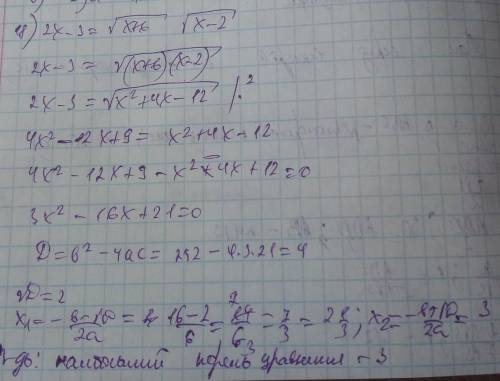 18) 2x-3 = √x+6 √x-2
2x-3 = √(x+6)(x-2)
2x-3 = √x²+4x-12 /·²
4x²-12x+9 = x²+4x-12
4x²-12x+9-x²-4x+12=0
3x²-16x+21=0
D=b²-4ac= 252-4.3.21=4
√D=2
x₁=-b-√D/2a = 16-2/6 = 14/6 = 7/3 = 2 1/3; x₂=-b+√D/2a= 3
наибольший корень уравнения - 3